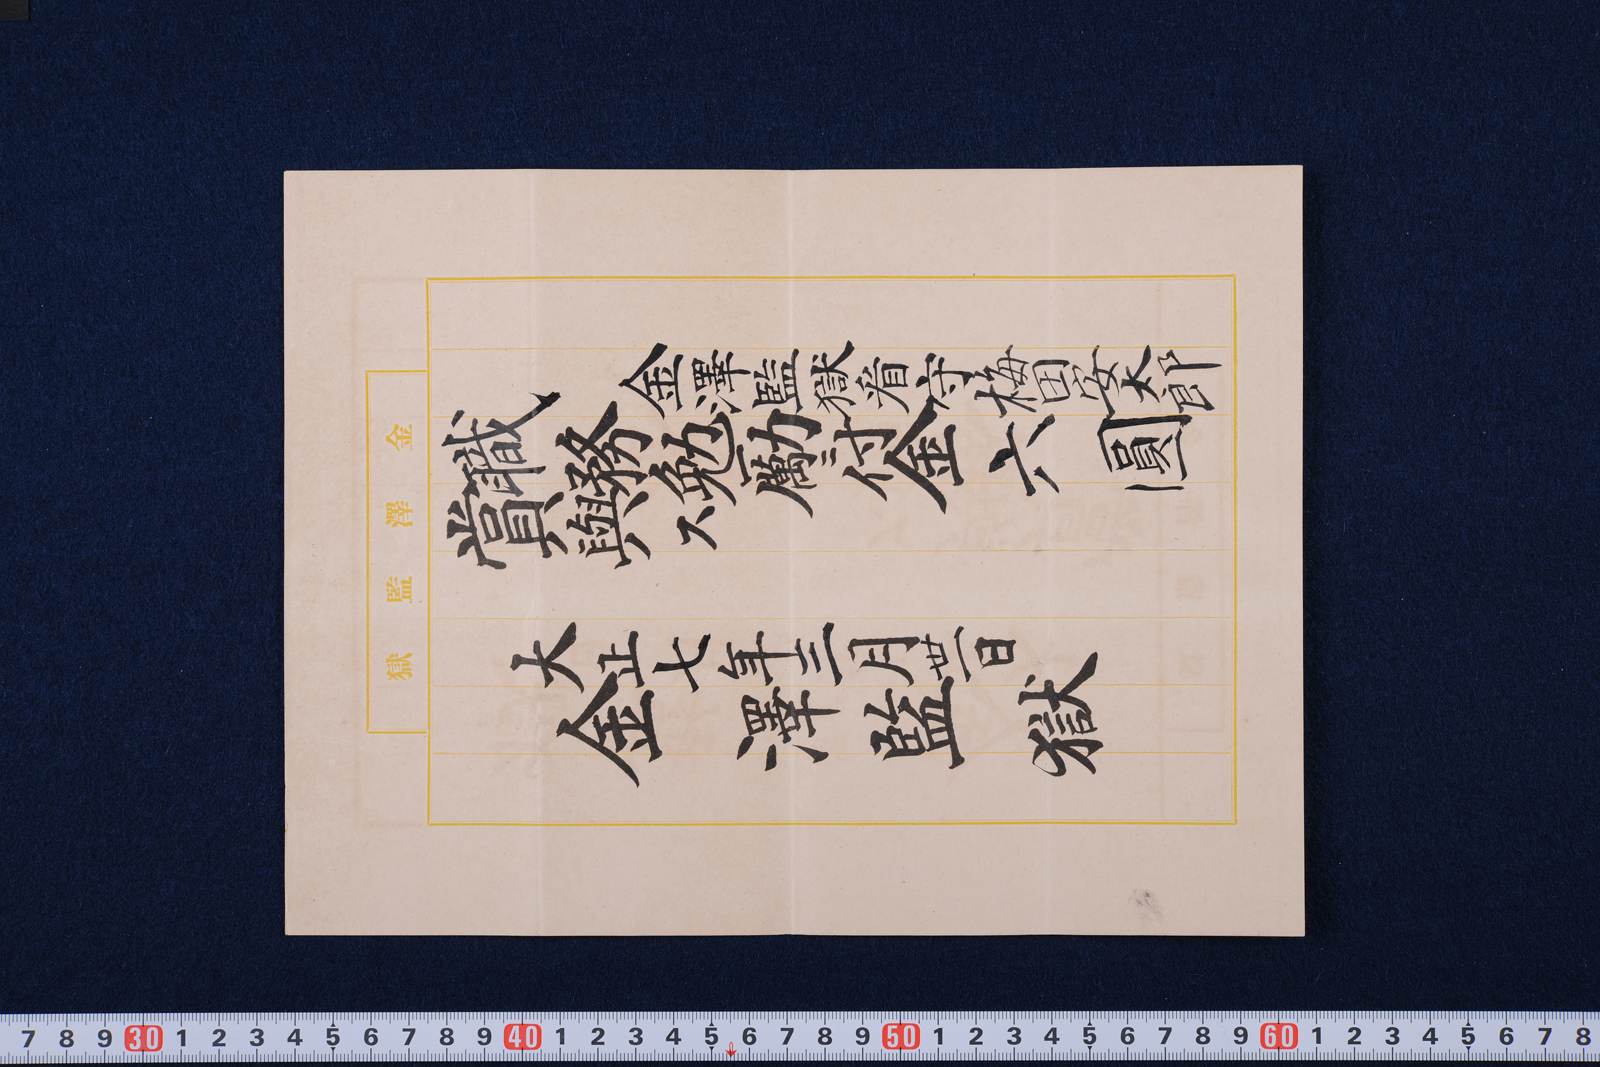 金澤監獄看守梅田安太郎
職務勉勵付金六圓
賞與ス
大正七年三月卅一日
金澤監獄
金澤監獄
7 8 9 30 1 2 3 4 5 6 7 8 9 40 1 2 3 4 5 6 7 8 9 50 1 2 3 4 5 6 7 8 9 60 1 2 3 4 5 6 7 8